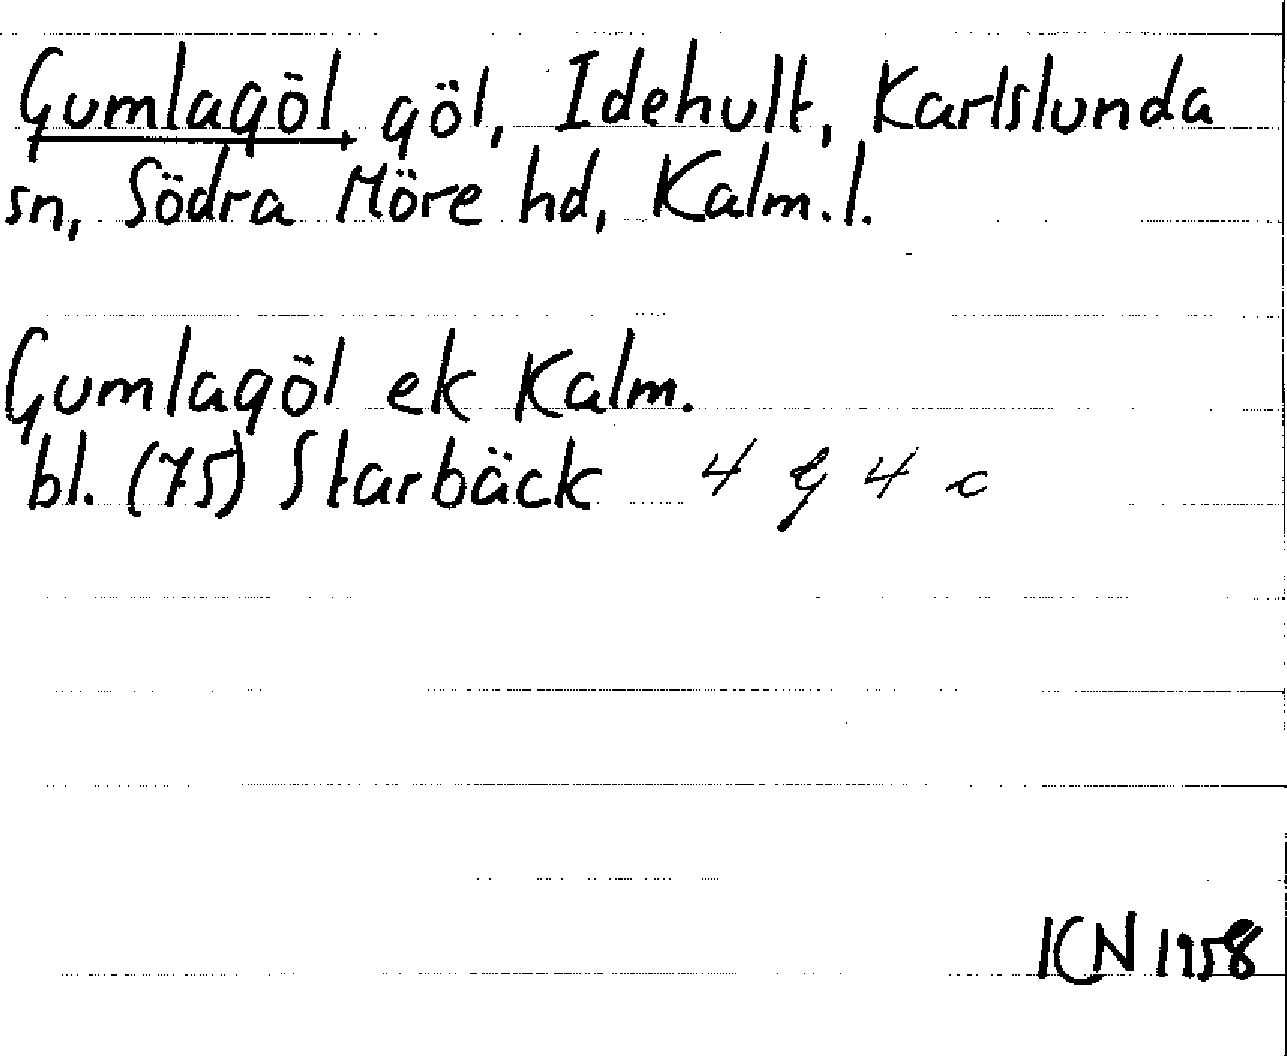 Gumlagöl, göl, Idehult, Karlslunda
sn, Södra Möre hd, Kalm. l.
Gumlagöl ek Kalm.
bl. (75) Starbäck 4 G 4 c
ICN 1958